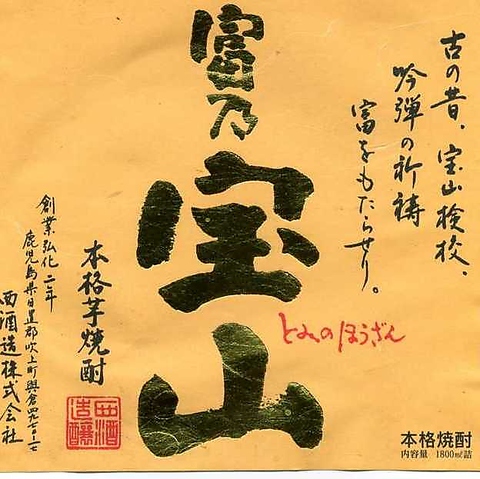 古の昔、宝山検校、
吟弾の祈祷
富をもたらせり。
富乃宝山
とみのほうざん
本格芋焼酎
創業弘化二年
鹿児島県日置郡吹上町與倉四九七〇-一七
西酒造株式会社
西酒
造醸
本格焼酎
内容量 1800㎖詰